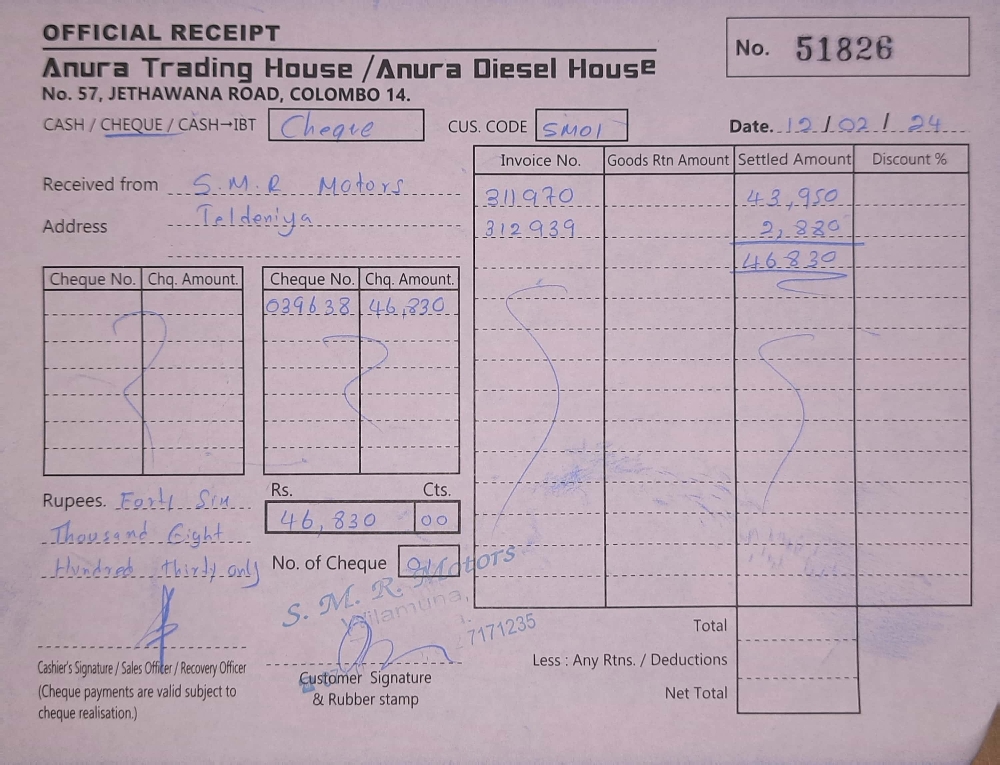 OFFICIAL RECEIPT
Anura Trading House /Anura Diesel House
No. 57, JETHAWANA ROAD, COLOMBO 14.
No. 51826
CASH / CHEQUE / CASH→IBT Cheque
CUS. CODE SM01
Date. 12 / 02 / 24
Received from S.M.R Motors
Address Teldeniya
Invoice No. Goods Rtn Amount Settled Amount Discount %
311970 43,950
312939 2,880
46830
Cheque No. Chq. Amount.
Cheque No. Chq. Amount.
039638 46,830
Rupees. Forty Six
Thousand Eight
Hundred thirty only
Rs. Cts.
46,830 00
No. of Cheque
S. M. R. Motors
7171235
Cashier's Signature / Sales Officer / Recovery Officer
(Cheque payments are valid subject to
cheque realisation.)
Customer Signature
& Rubber stamp
Total
Less : Any Rtns. / Deductions
Net Total